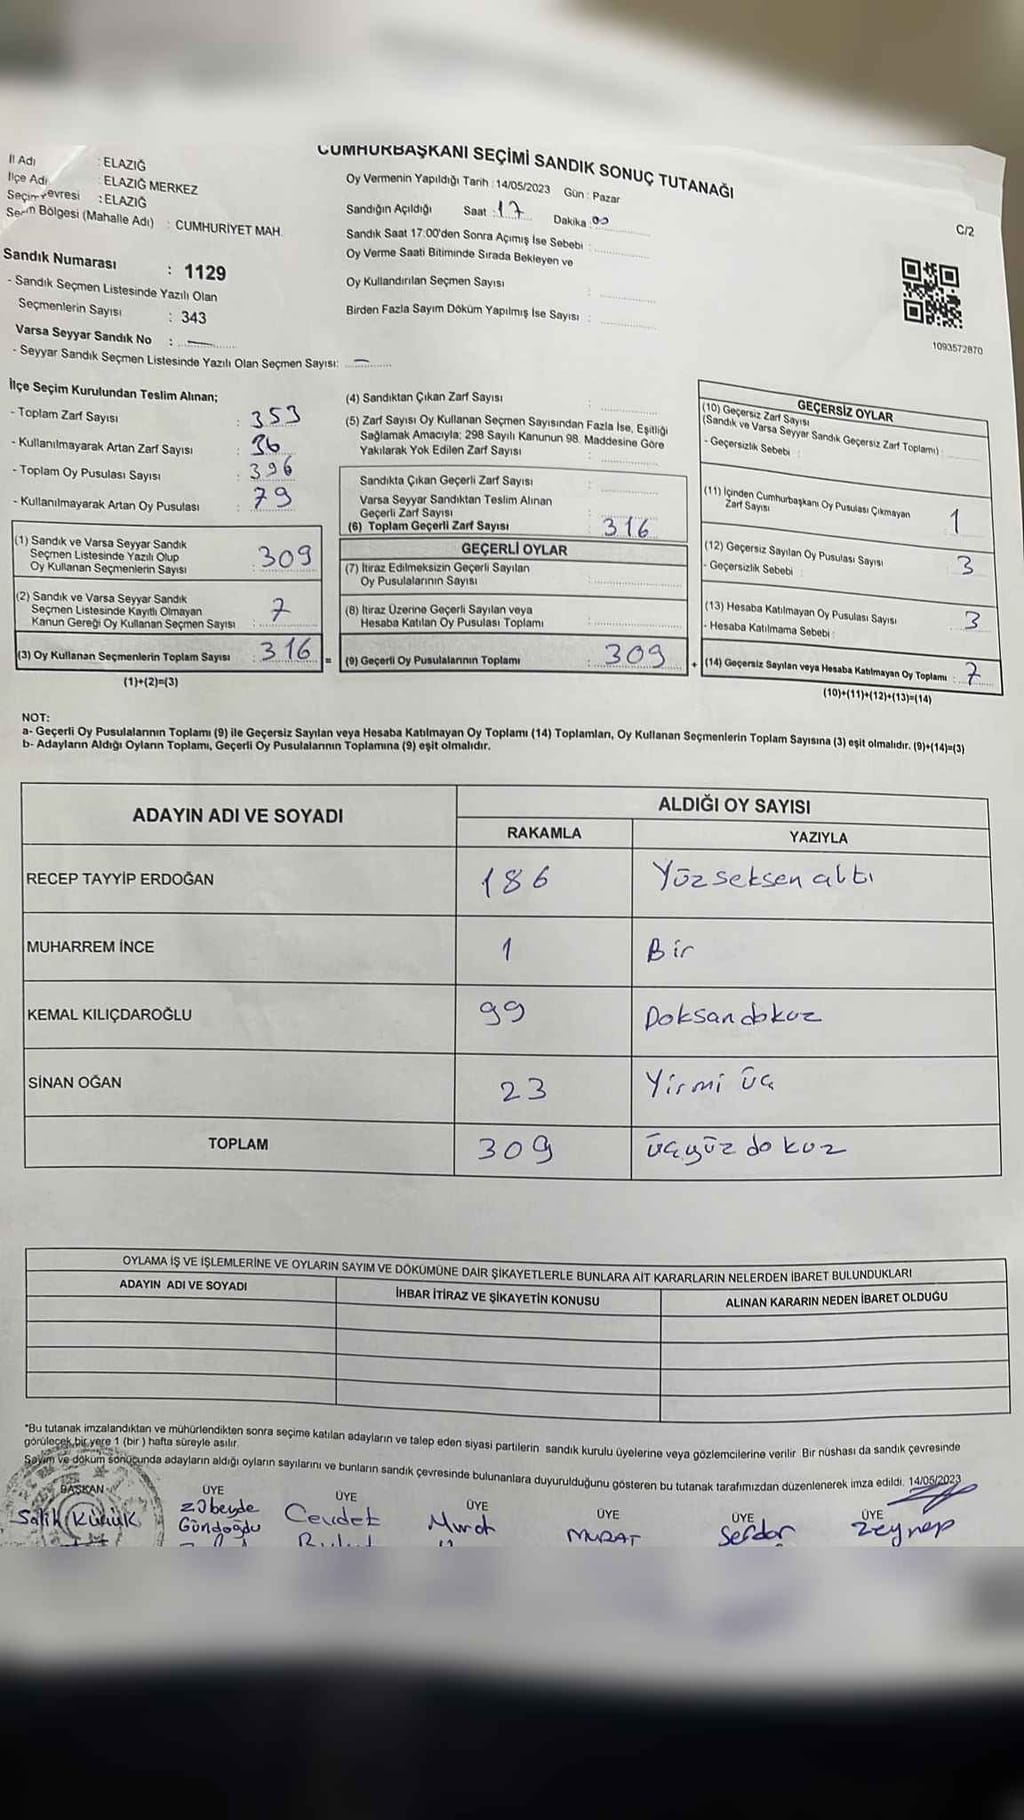 CUMHURBAŞKANI SEÇİMİ SANDIK SONUÇ TUTANAĞI
İl Adı : ELAZIĞ
İlçe Adı : ELAZIĞ MERKEZ
Seçim Çevresi : ELAZIĞ
Seçim Bölgesi (Mahalle Adı) : CUMHURİYET MAH.
Sandık Numarası : 1129
- Sandık Seçmen Listesinde Yazılı Olan
Seçmenlerin Sayısı : 343
Varsa Seyyar Sandık No : —
- Seyyar Sandık Seçmen Listesinde Yazılı Olan Seçmen Sayısı: —
Oy Vermenin Yapıldığı Tarih : 14/05/2023 Gün : Pazar
Sandığın Açıldığı Saat : 17 Dakika : 00
Sandık Saat 17:00'den Sonra Açımış İse Sebebi :
Oy Verme Saati Bitiminde Sırada Bekleyen ve
Oy Kullandırılan Seçmen Sayısı :
Birden Fazla Sayım Döküm Yapılmış İse Sayısı :
C/2
1093572870
İlçe Seçim Kurulundan Teslim Alınan;
- Toplam Zarf Sayısı : 353
- Kullanılmayarak Artan Zarf Sayısı : 36
- Toplam Oy Pusulası Sayısı : 396
- Kullanılmayarak Artan Oy Pusulası : 79
(1) Sandık ve Varsa Seyyar Sandık
Seçmen Listesinde Yazılı Olup
Oy Kullanan Seçmenlerin Sayısı : 309
(2) Sandık ve Varsa Seyyar Sandık
Seçmen Listesinde Kayıtlı Olmayan
Kanun Gereği Oy Kullanan Seçmen Sayısı : 7
(3) Oy Kullanan Seçmenlerin Toplam Sayısı : 316 =
(1)+(2)=(3)
(4) Sandıktan Çıkan Zarf Sayısı :
(5) Zarf Sayısı Oy Kullanan Seçmen Sayısından Fazla İse, Eşitliği
Sağlamak Amacıyla; 298 Sayılı Kanunun 98. Maddesine Göre
Yakılarak Yok Edilen Zarf Sayısı :
Sandıkta Çıkan Geçerli Zarf Sayısı :
Varsa Seyyar Sandıktan Teslim Alınan
Geçerli Zarf Sayısı :
(6) Toplam Geçerli Zarf Sayısı : 316
GEÇERLİ OYLAR
(7) İtiraz Edilmeksizin Geçerli Sayılan
Oy Pusulalarının Sayısı :
(8) İtiraz Üzerine Geçerli Sayılan veya
Hesaba Katılan Oy Pusulası Toplamı :
(9) Geçerli Oy Pusulalarının Toplamı : 309 +
GEÇERSİZ OYLAR
(10) Geçersiz Zarf Sayısı
(Sandık ve Varsa Seyyar Sandık Geçersiz Zarf Toplamı) :
- Geçersizlik Sebebi :
(11) İçinden Cumhurbaşkanı Oy Pusulası Çıkmayan
Zarf Sayısı 1
(12) Geçersiz Sayılan Oy Pusulası Sayısı 3
- Geçersizlik Sebebi :
(13) Hesaba Katılmayan Oy Pusulası Sayısı 3
- Hesaba Katılmama Sebebi :
(14) Geçersiz Sayılan veya Hesaba Katılmayan Oy Toplamı : 7
(10)+(11)+(12)+(13)=(14)
NOT:
a- Geçerli Oy Pusulalarının Toplamı (9) ile Geçersiz Sayılan veya Hesaba Katılmayan Oy Toplamı (14) Toplamları, Oy Kullanan Seçmenlerin Toplam Sayısına (3) eşit olmalıdır. (9)+(14)=(3)
b- Adayların Aldığı Oyların Toplamı, Geçerli Oy Pusulalarının Toplamına (9) eşit olmalıdır.
ADAYIN ADI VE SOYADI
ALDIĞI OY SAYISI
RAKAMLA YAZIYLA
RECEP TAYYİP ERDOĞAN 186 Yüzseksenaltı
MUHARREM İNCE 1 Bir
KEMAL KILIÇDAROĞLU 99 Doksandokuz
SİNAN OĞAN 23 Yirmi üç
TOPLAM 309 üçyüz dokuz
OYLAMA İŞ VE İŞLEMLERİNE VE OYLARIN SAYIM VE DÖKÜMÜNE DAİR ŞİKAYETLERLE BUNLARA AİT KARARLARIN NELERDEN İBARET BULUNDUKLARI
ADAYIN ADI VE SOYADI İHBAR İTİRAZ VE ŞİKAYETİN KONUSU ALINAN KARARIN NEDEN İBARET OLDUĞU
*Bu tutanak imzalandıktan ve mühürlendikten sonra seçime katılan adayların ve talep eden siyasi partilerin sandık kurulu üyelerine veya gözlemcilerine verilir. Bir nüshası da sandık çevresinde
görülecek bir yere 1 (bir ) hafta süreyle asılır.
Sayım ve döküm sonucunda adayların aldığı oyların sayılarını ve bunların sandık çevresinde bulunanlara duyurulduğunu gösteren bu tutanak tarafımızdan düzenlenerek imza edildi. 14/05/2023
BAŞKAN ÜYE ÜYE ÜYE ÜYE ÜYE ÜYE
Salih Küçük Zübeyde Cevdet Murat MURAT Serdar Zeynep
Gündoğdu Bulut